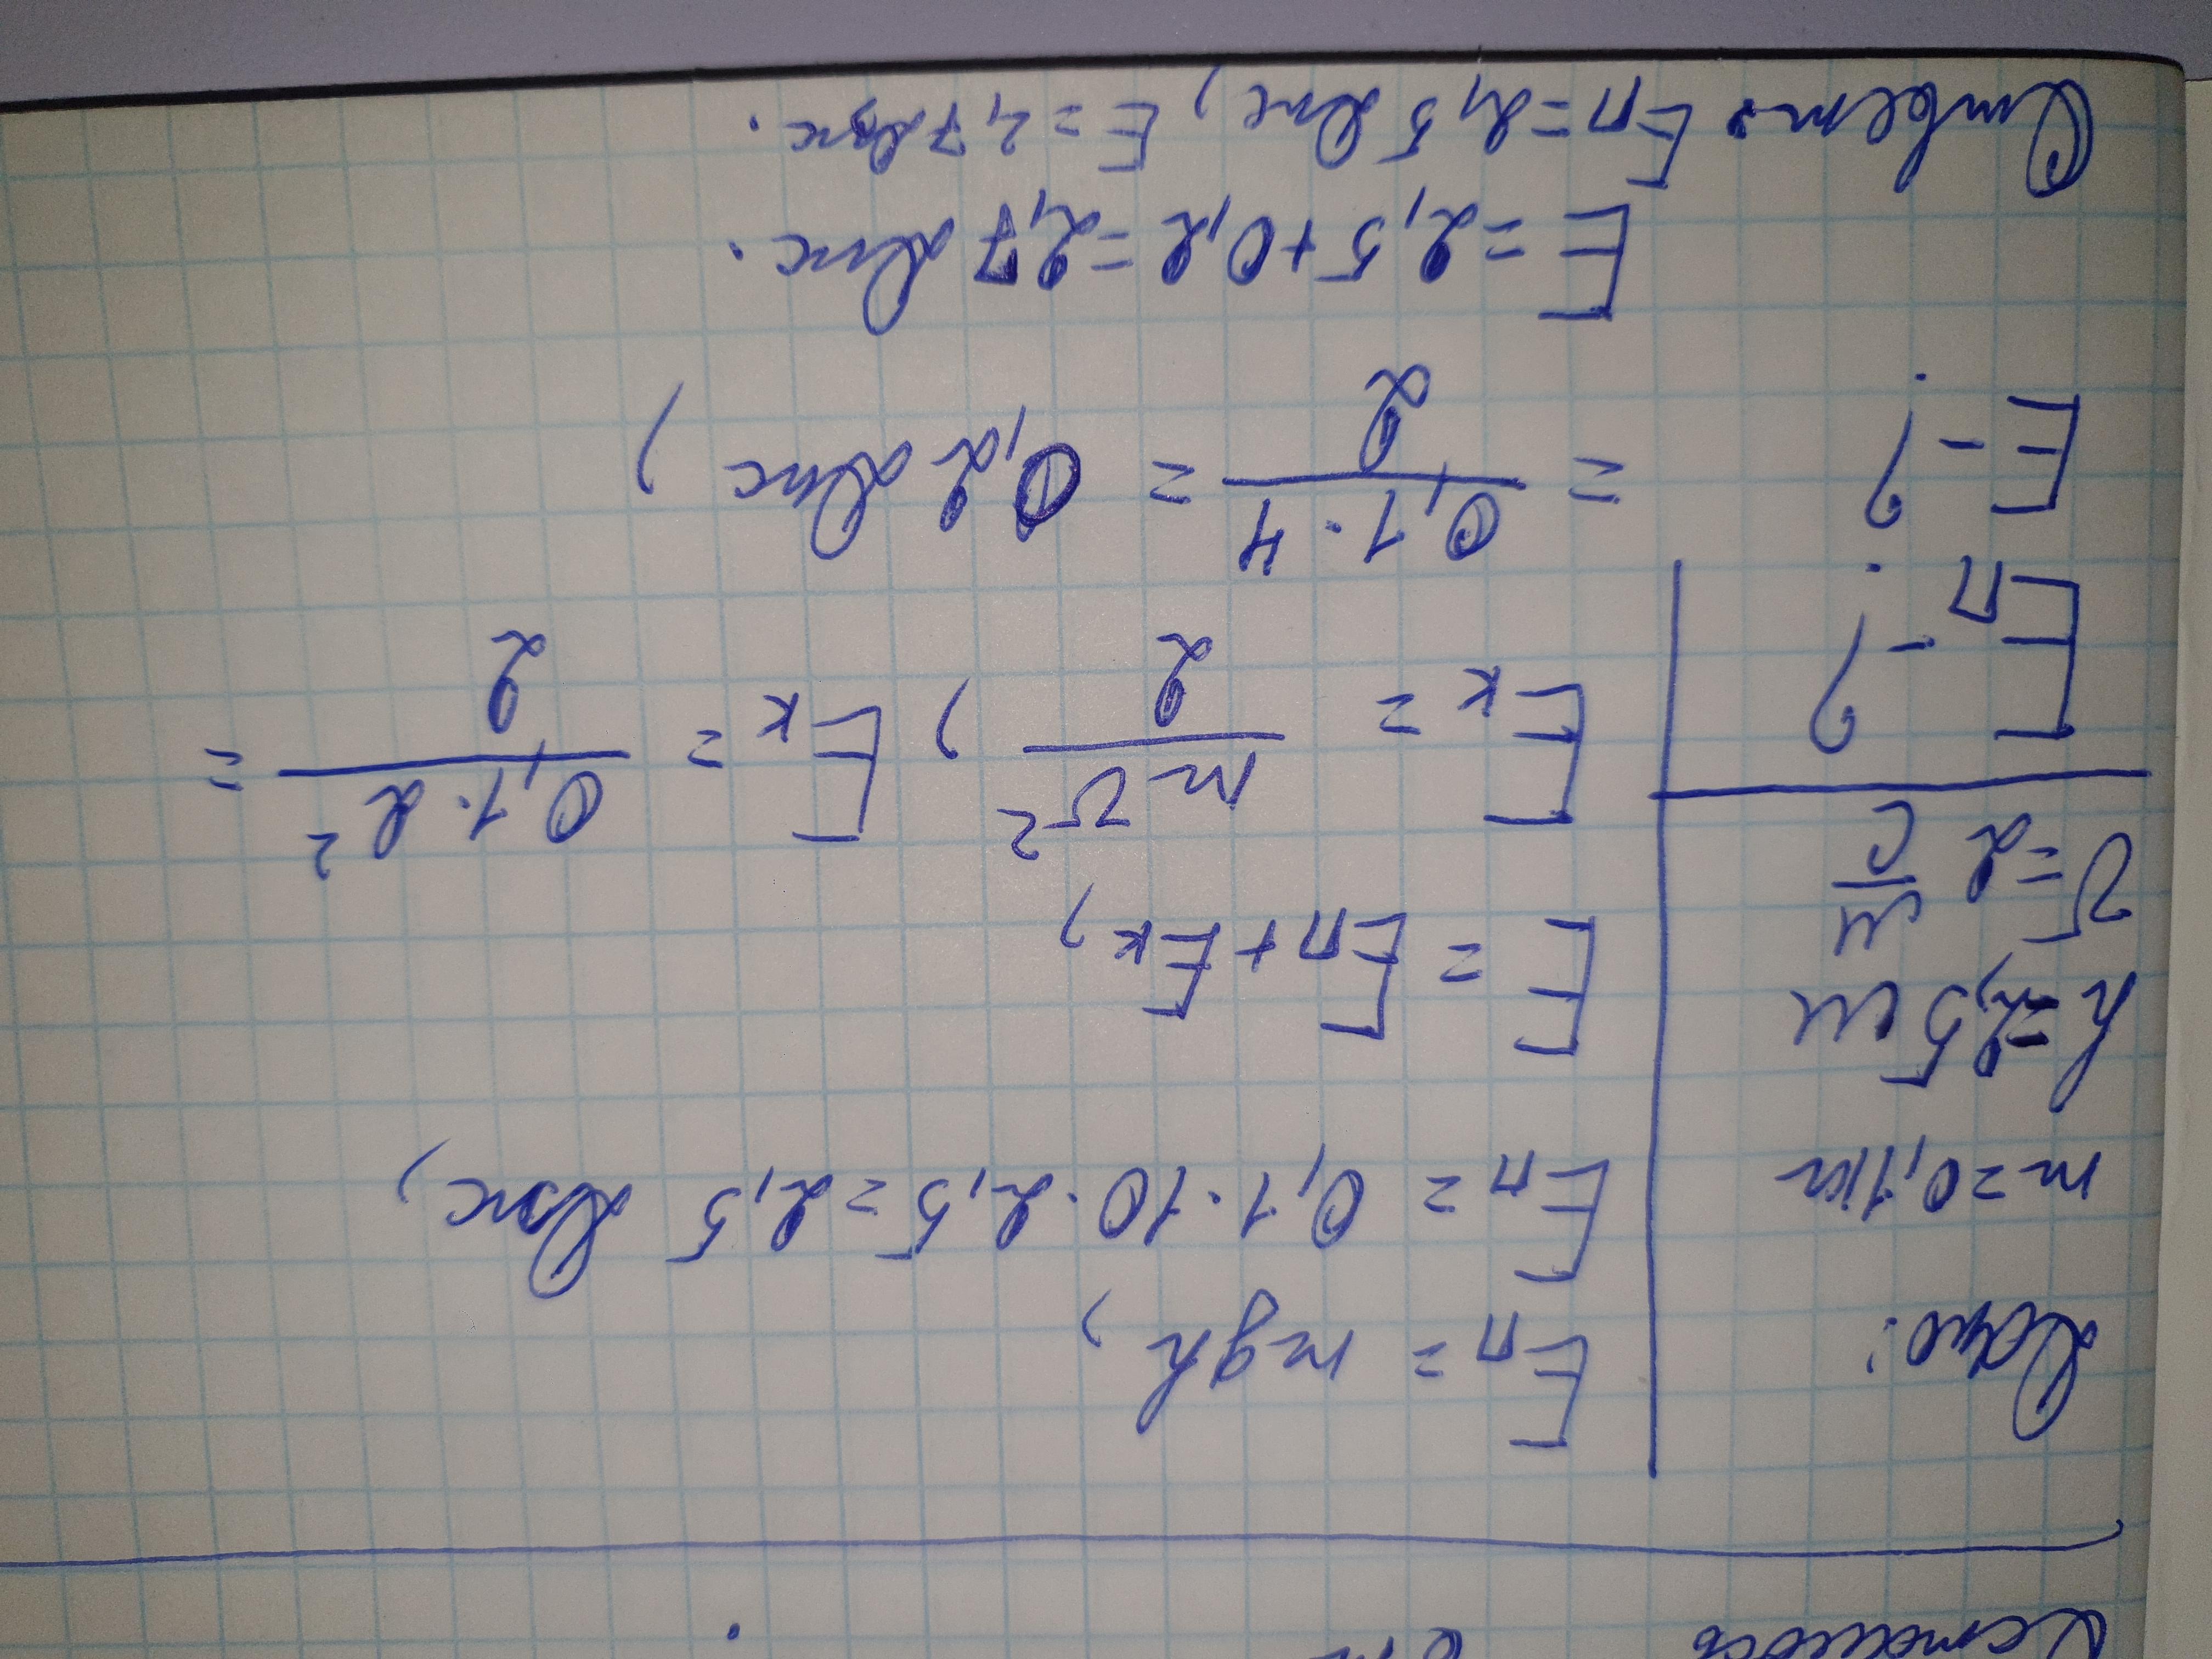 Дано:
m=0,1кг
h=2,5 м
υ=2 м/с
Eп-?
E-?
Eп = mgh,
Eп = 0,1·10·2,5=2,5 Дж,
E = Eп+Eк,
Eк = mυ²/2, Eк = 0,1·2²/2 =
= 0,1·4/2 = 0,2 Дж,
E=2,5+0,2=2,7 Дж.
Ответ: Eп=2,5 Дж, E=2,7 Дж.